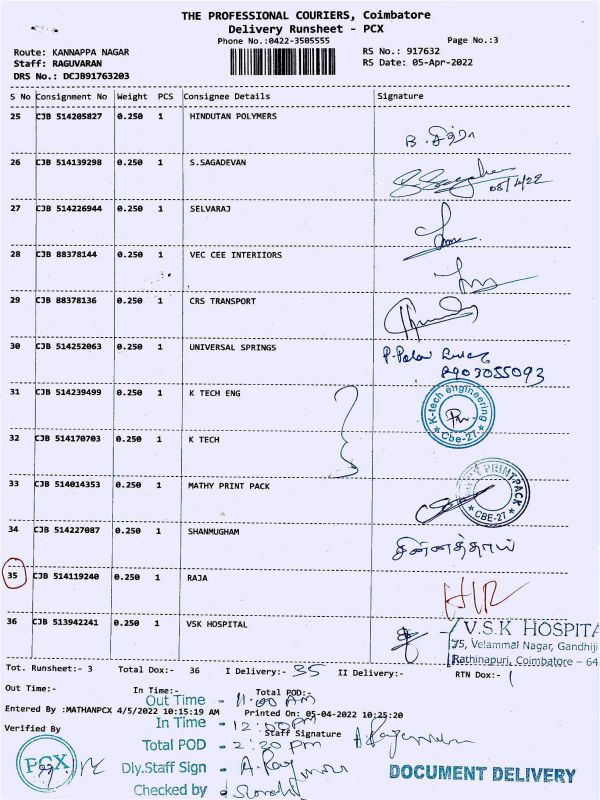 THE PROFESSIONAL COURIERS, Coimbatore
Delivery Runsheet - PCX
Phone No.:0422-3505555
Page No.:3
Route: KANNAPPA NAGAR
RS No.: 917632
Staff: RAGUVARAN
RS Date: 05-Apr-2022
DRS No.: DCJB91763203
S No Consignment No Weight PCS Consignee Details Signature
25 CJB 514205827 0.250 1 HINDUTAN POLYMERS
B. சித்ரா
26 CJB 514139298 0.250 1 S.SAGADEVAN
05/4/22
27 CJB 514226944 0.250 1 SELVARAJ
28 CJB 88378144 0.250 1 VEC CEE INTERIIORS
29 CJB 88378136 0.250 1 CRS TRANSPORT
30 CJB 514252063 0.250 1 UNIVERSAL SPRINGS
8903055093
31 CJB 514239499 0.250 1 K TECH ENG
K-tech engineering
Cbe-27
32 CJB 514170703 0.250 1 K TECH
33 CJB 514014353 0.250 1 MATHY PRINT PACK
PRINT PACK
CBE-27
34 CJB 514227087 0.250 1 SHANMUGHAM
சின்னத்தாய்
35 CJB 514119240 0.250 1 RAJA
36 CJB 513942241 0.250 1 VSK HOSPITAL
V.S.K HOSPITA
75, Velammal Nagar, Gandhiji
Rathinapuri, Coimbatore - 64
Tot. Runsheet:- 3 Total Dox:- 36 I Delivery:- 35 II Delivery:- RTN Dox:- 1
Out Time:- In Time:- Total POD:-
Out Time - 11:00 AM
Entered By :MATHANPCX 4/5/2022 10:15:19 AM Printed On: 05-04-2022 10:25:20
In Time - 12:00pm
Verified By Staff Signature
Total POD - 2:30 pm
PCX
Dly.Staff Sign -
DOCUMENT DELIVERY
Checked by